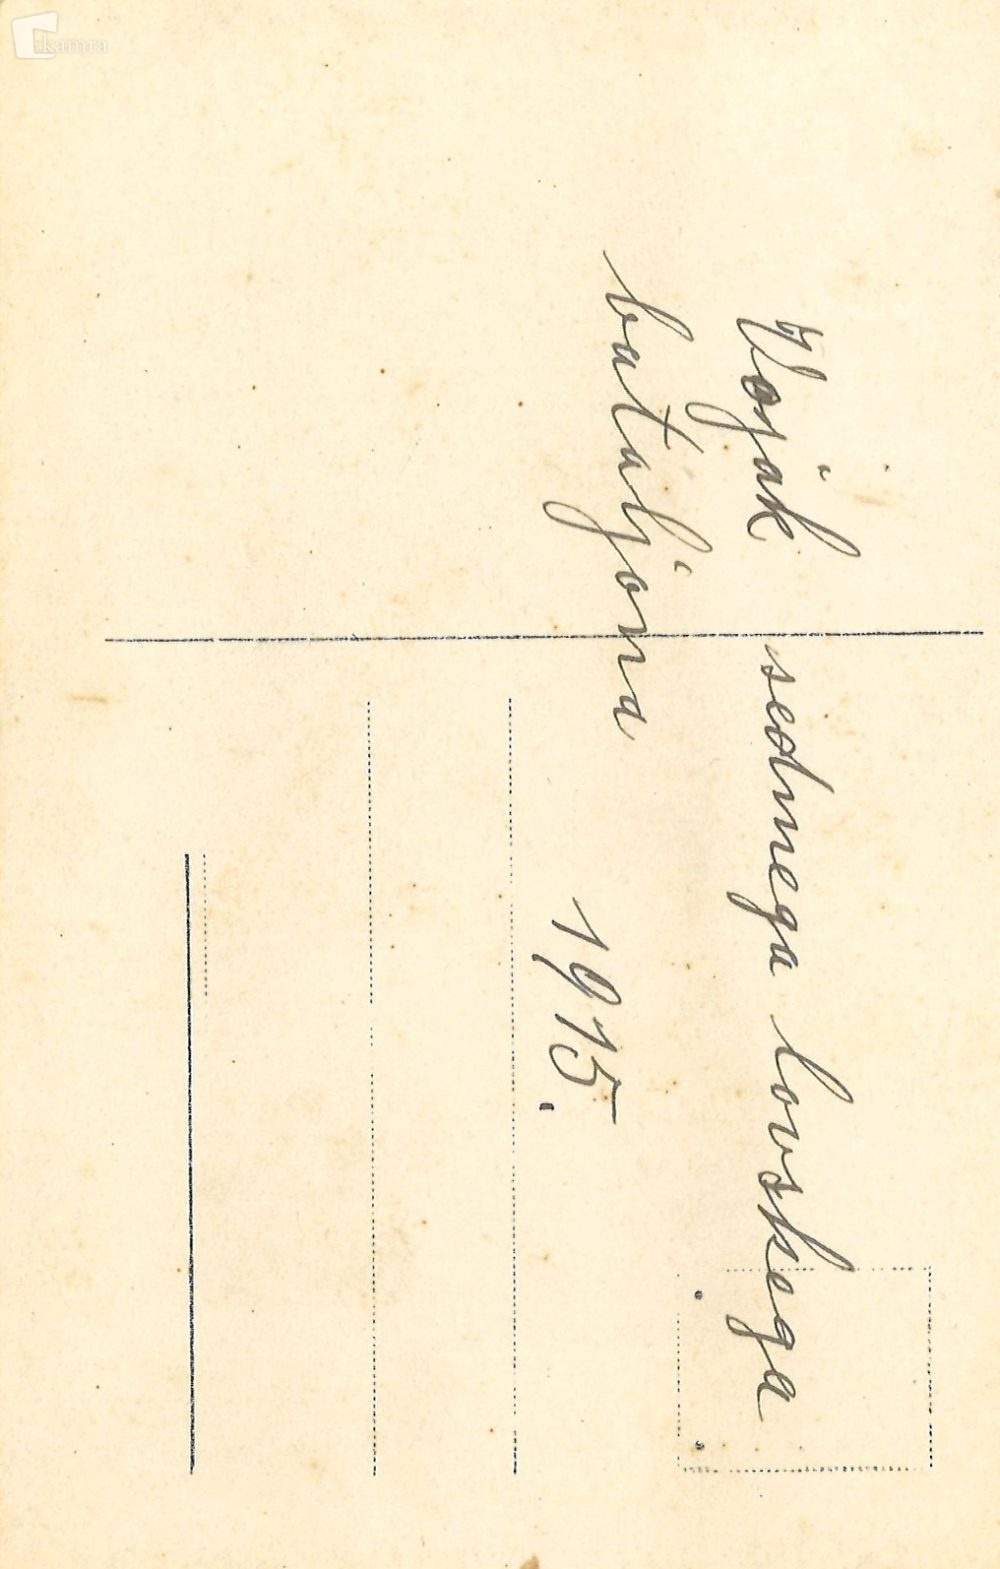 kamra
Vojak sedmega lovskega
bataljona
1915.